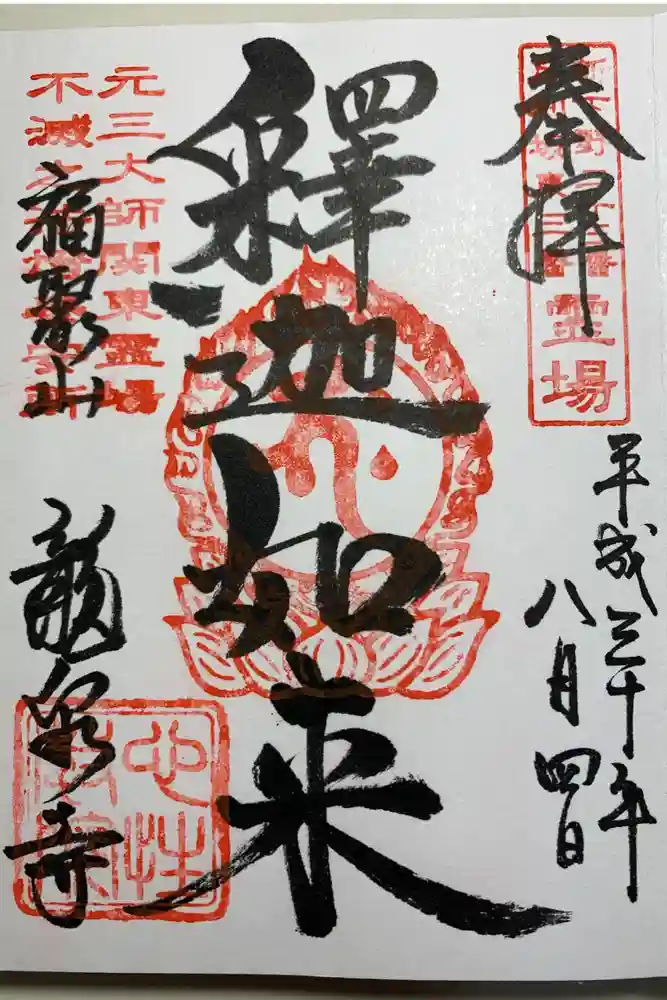 奉拝
霊場
平成三十年
八月四日
釋迦如来
元三大師関東霊場
不滅
福聚山
龍泉寺
心性